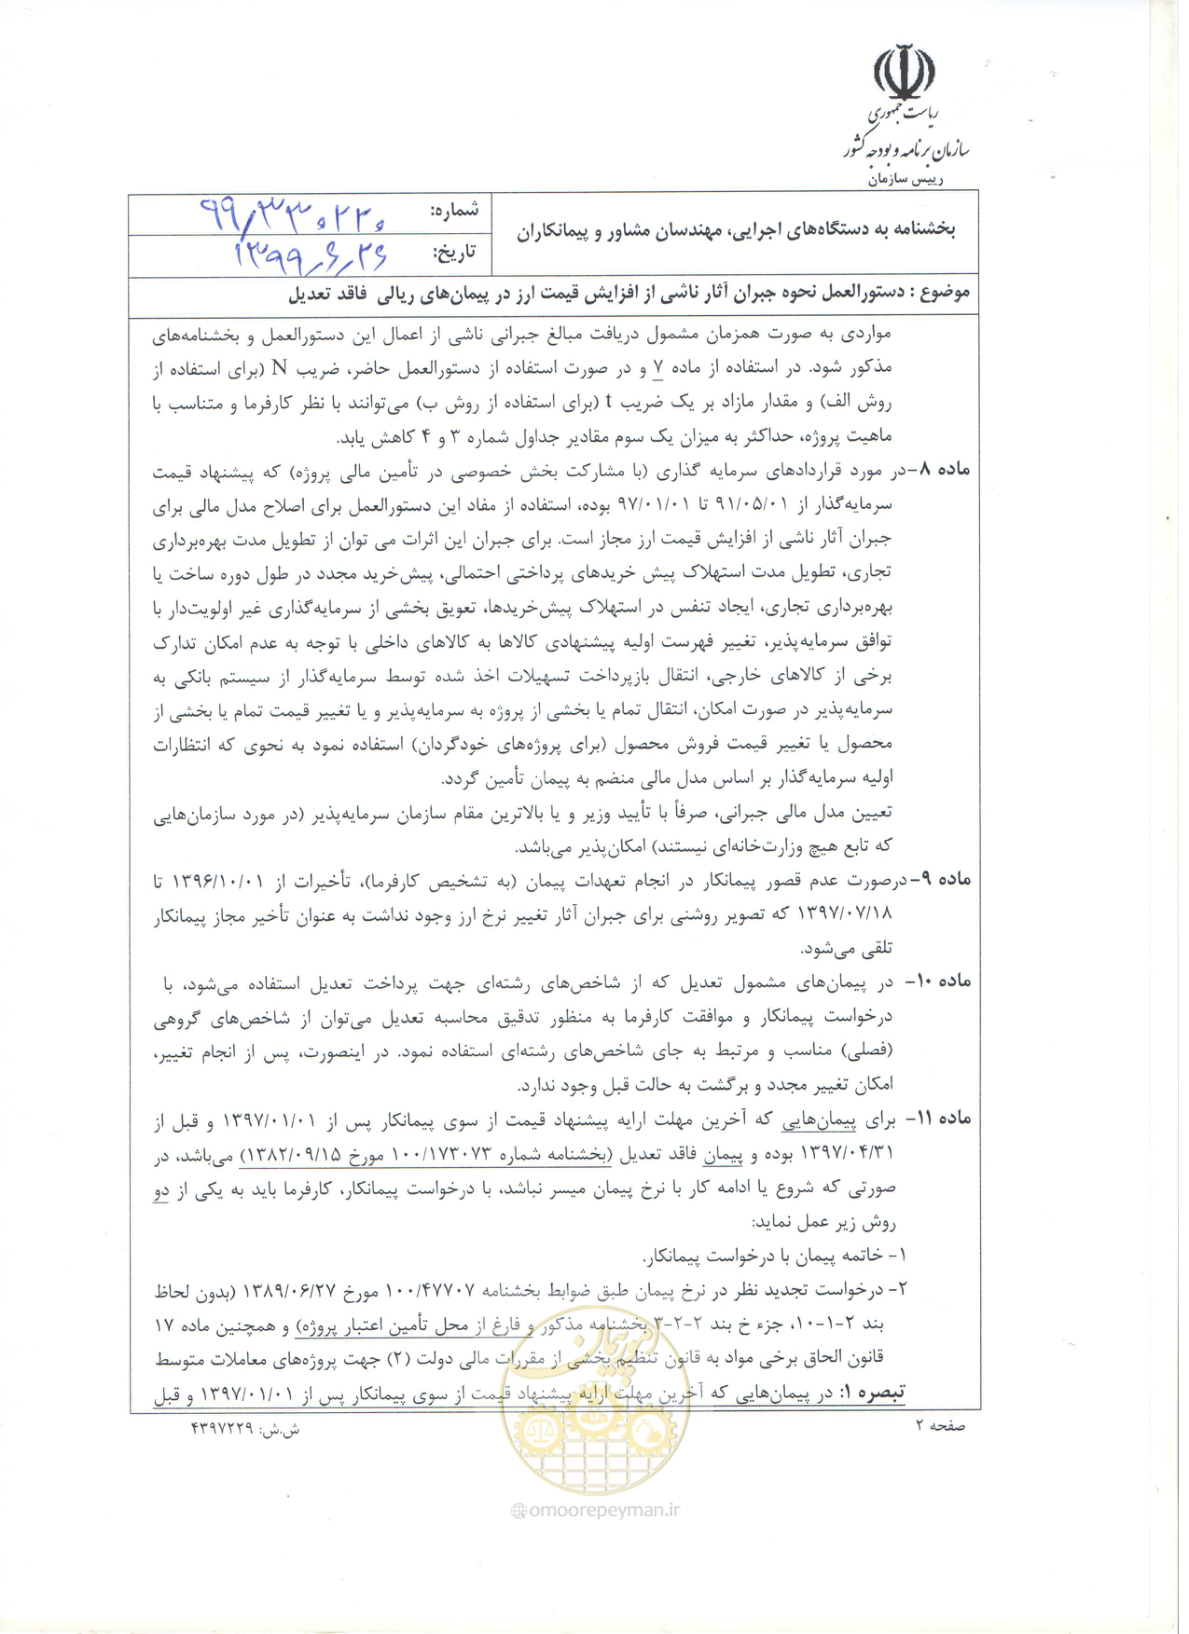 ریاست جمهوری
سازمان برنامه و بودجه کشور
رییس سازمان
بخشنامه به دستگاه‌های اجرایی، مهندسان مشاور و پیمانکاران
شماره: ۹۹/۳۳۰۲۲۰
تاریخ: ۱۳۹۹/۶/۲۶
موضوع : دستورالعمل نحوه جبران آثار ناشی از افزایش قیمت ارز در پیمان‌های ریالی فاقد تعدیل
مواردی به صورت همزمان مشمول دریافت مبالغ جبرانی ناشی از اعمال این دستورالعمل و بخشنامه‌های
مذکور شود. در استفاده از ماده ۷ و در صورت استفاده از دستورالعمل حاضر، ضریب N (برای استفاده از
روش الف) و مقدار مازاد بر یک ضریب t (برای استفاده از روش ب) می‌توانند با نظر کارفرما و متناسب با
ماهیت پروژه، حداکثر به میزان یک سوم مقادیر جداول شماره ۳ و ۴ کاهش یابد.
ماده ۸-در مورد قراردادهای سرمایه گذاری (با مشارکت بخش خصوصی در تأمین مالی پروژه) که پیشنهاد قیمت
سرمایه‌گذار از ۹۱/۰۵/۰۱ تا ۹۷/۰۱/۰۱ بوده، استفاده از مفاد این دستورالعمل برای اصلاح مدل مالی برای
جبران آثار ناشی از افزایش قیمت ارز مجاز است. برای جبران این اثرات می توان از تطویل مدت بهره‌برداری
تجاری، تطویل مدت استهلاک پیش خریدهای پرداختی احتمالی، پیش‌خرید مجدد در طول دوره ساخت یا
بهره‌برداری تجاری، ایجاد تنفس در استهلاک پیش‌خریدها، تعویق بخشی از سرمایه‌گذاری غیر اولویت‌دار با
توافق سرمایه‌پذیر، تغییر فهرست اولیه پیشنهادی کالاها به کالاهای داخلی با توجه به عدم امکان تدارک
برخی از کالاهای خارجی، انتقال بازپرداخت تسهیلات اخذ شده توسط سرمایه‌گذار از سیستم بانکی به
سرمایه‌پذیر در صورت امکان، انتقال تمام یا بخشی از پروژه به سرمایه‌پذیر و یا تغییر قیمت تمام یا بخشی از
محصول یا تغییر قیمت فروش محصول (برای پروژه‌های خودگردان) استفاده نمود به نحوی که انتظارات
اولیه سرمایه‌گذار بر اساس مدل مالی منضم به پیمان تأمین گردد.
تعیین مدل مالی جبرانی، صرفاً با تأیید وزیر و یا بالاترین مقام سازمان سرمایه‌پذیر (در مورد سازمان‌هایی
که تابع هیچ وزارت‌خانه‌ای نیستند) امکان‌پذیر می‌باشد.
ماده ۹-درصورت عدم قصور پیمانکار در انجام تعهدات پیمان (به تشخیص کارفرما)، تأخیرات از ۱۳۹۶/۱۰/۰۱ تا
۱۳۹۷/۰۷/۱۸ که تصویر روشنی برای جبران آثار تغییر نرخ ارز وجود نداشت به عنوان تأخیر مجاز پیمانکار
تلقی می‌شود.
ماده ۱۰- در پیمان‌های مشمول تعدیل که از شاخص‌های رشته‌ای جهت پرداخت تعدیل استفاده می‌شود، با
درخواست پیمانکار و موافقت کارفرما به منظور تدقیق محاسبه تعدیل می‌توان از شاخص‌های گروهی
(فصلی) مناسب و مرتبط به جای شاخص‌های رشته‌ای استفاده نمود. در اینصورت، پس از انجام تغییر،
امکان تغییر مجدد و برگشت به حالت قبل وجود ندارد.
ماده ۱۱- برای پیمان‌هایی که آخرین مهلت ارایه پیشنهاد قیمت از سوی پیمانکار پس از ۱۳۹۷/۰۱/۰۱ و قبل از
۱۳۹۷/۰۴/۳۱ بوده و پیمان فاقد تعدیل (بخشنامه شماره ۱۰۰/۱۷۳۰۷۳ مورخ ۱۳۸۲/۰۹/۱۵) می‌باشد، در
صورتی که شروع یا ادامه کار با نرخ پیمان میسر نباشد، با درخواست پیمانکار، کارفرما باید به یکی از دو
روش زیر عمل نماید:
۱- خاتمه پیمان با درخواست پیمانکار.
۲- درخواست تجدید نظر در نرخ پیمان طبق ضوابط بخشنامه ۱۰۰/۴۷۷۰۷ مورخ ۱۳۸۹/۰۶/۲۷ (بدون لحاظ
بند ۲-۱-۱۰، جزء خ بند ۲-۲-۳ بخشنامه مذکور و فارغ از محل تأمین اعتبار پروژه) و همچنین ماده ۱۷
قانون الحاق برخی مواد به قانون تنظیم بخشی از مقررات مالی دولت (۲) جهت پروژه‌های معاملات متوسط
تبصره ۱: در پیمان‌هایی که آخرین مهلت ارایه پیشنهاد قیمت از سوی پیمانکار پس از ۱۳۹۷/۰۱/۰۱ و قبل
صفحه ۲
ش.ش: ۴۳۹۷۲۲۹
امور پیمان
omoorepeyman.ir